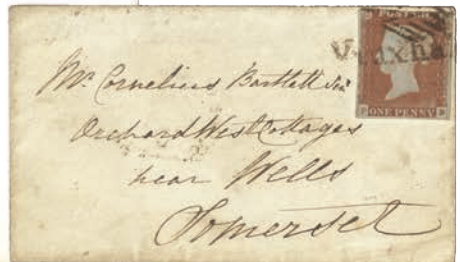 POSTAGE
Vraxha
ONE PENNY
Mr. Cornelius Bartlett Junr
Orchard West Cottages
near Wells
Somerset